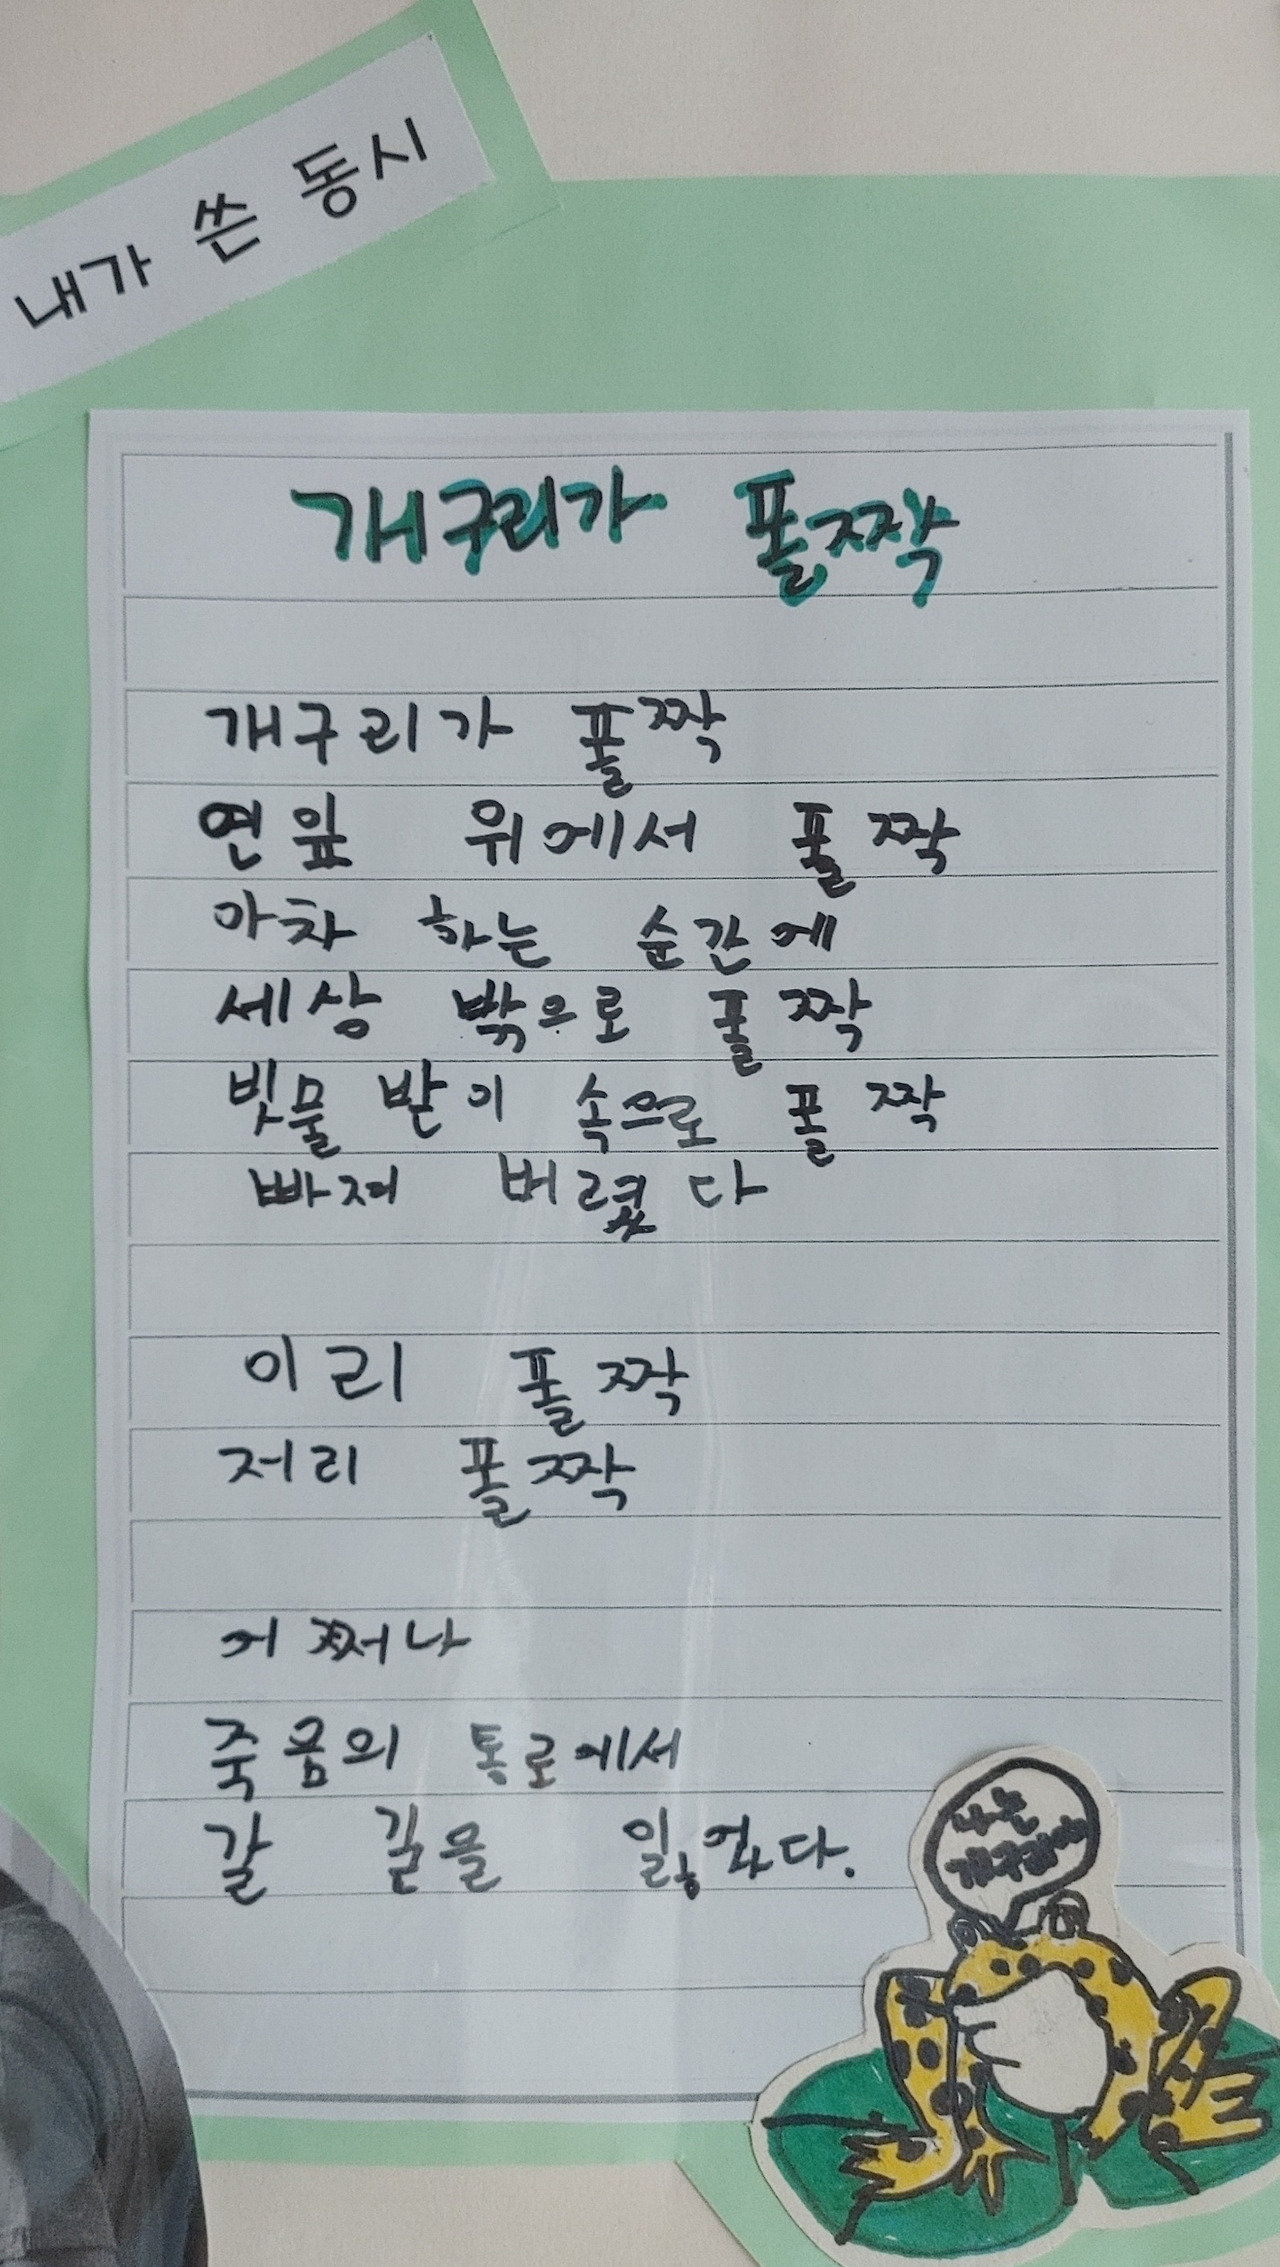 내가 쓴 동시
개구리가 폴짝
개구리가 폴짝
연잎 위에서 폴짝
아차 하는 순간에
세상 밖으로 폴짝
빗물 받이 속으로 폴짝
빠져 버렸다
이리 폴짝
저리 폴짝
어쩌나
죽음의 통로에서
갈 길을 잃었다.
나는
개구리야